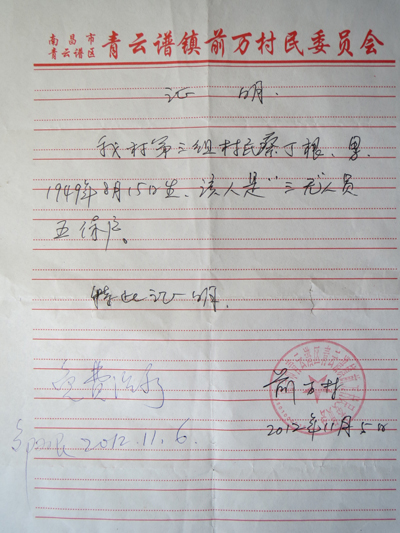 南昌市
青云谱区
青云谱镇前万村民委员会
证 明.
我村第三组村民蔡丁根、男、
1949年8月15日生、该人是“三无”人员
五保户。
特此证明.
免费治疗
2012.11.6.
前万村
2012年11月5日